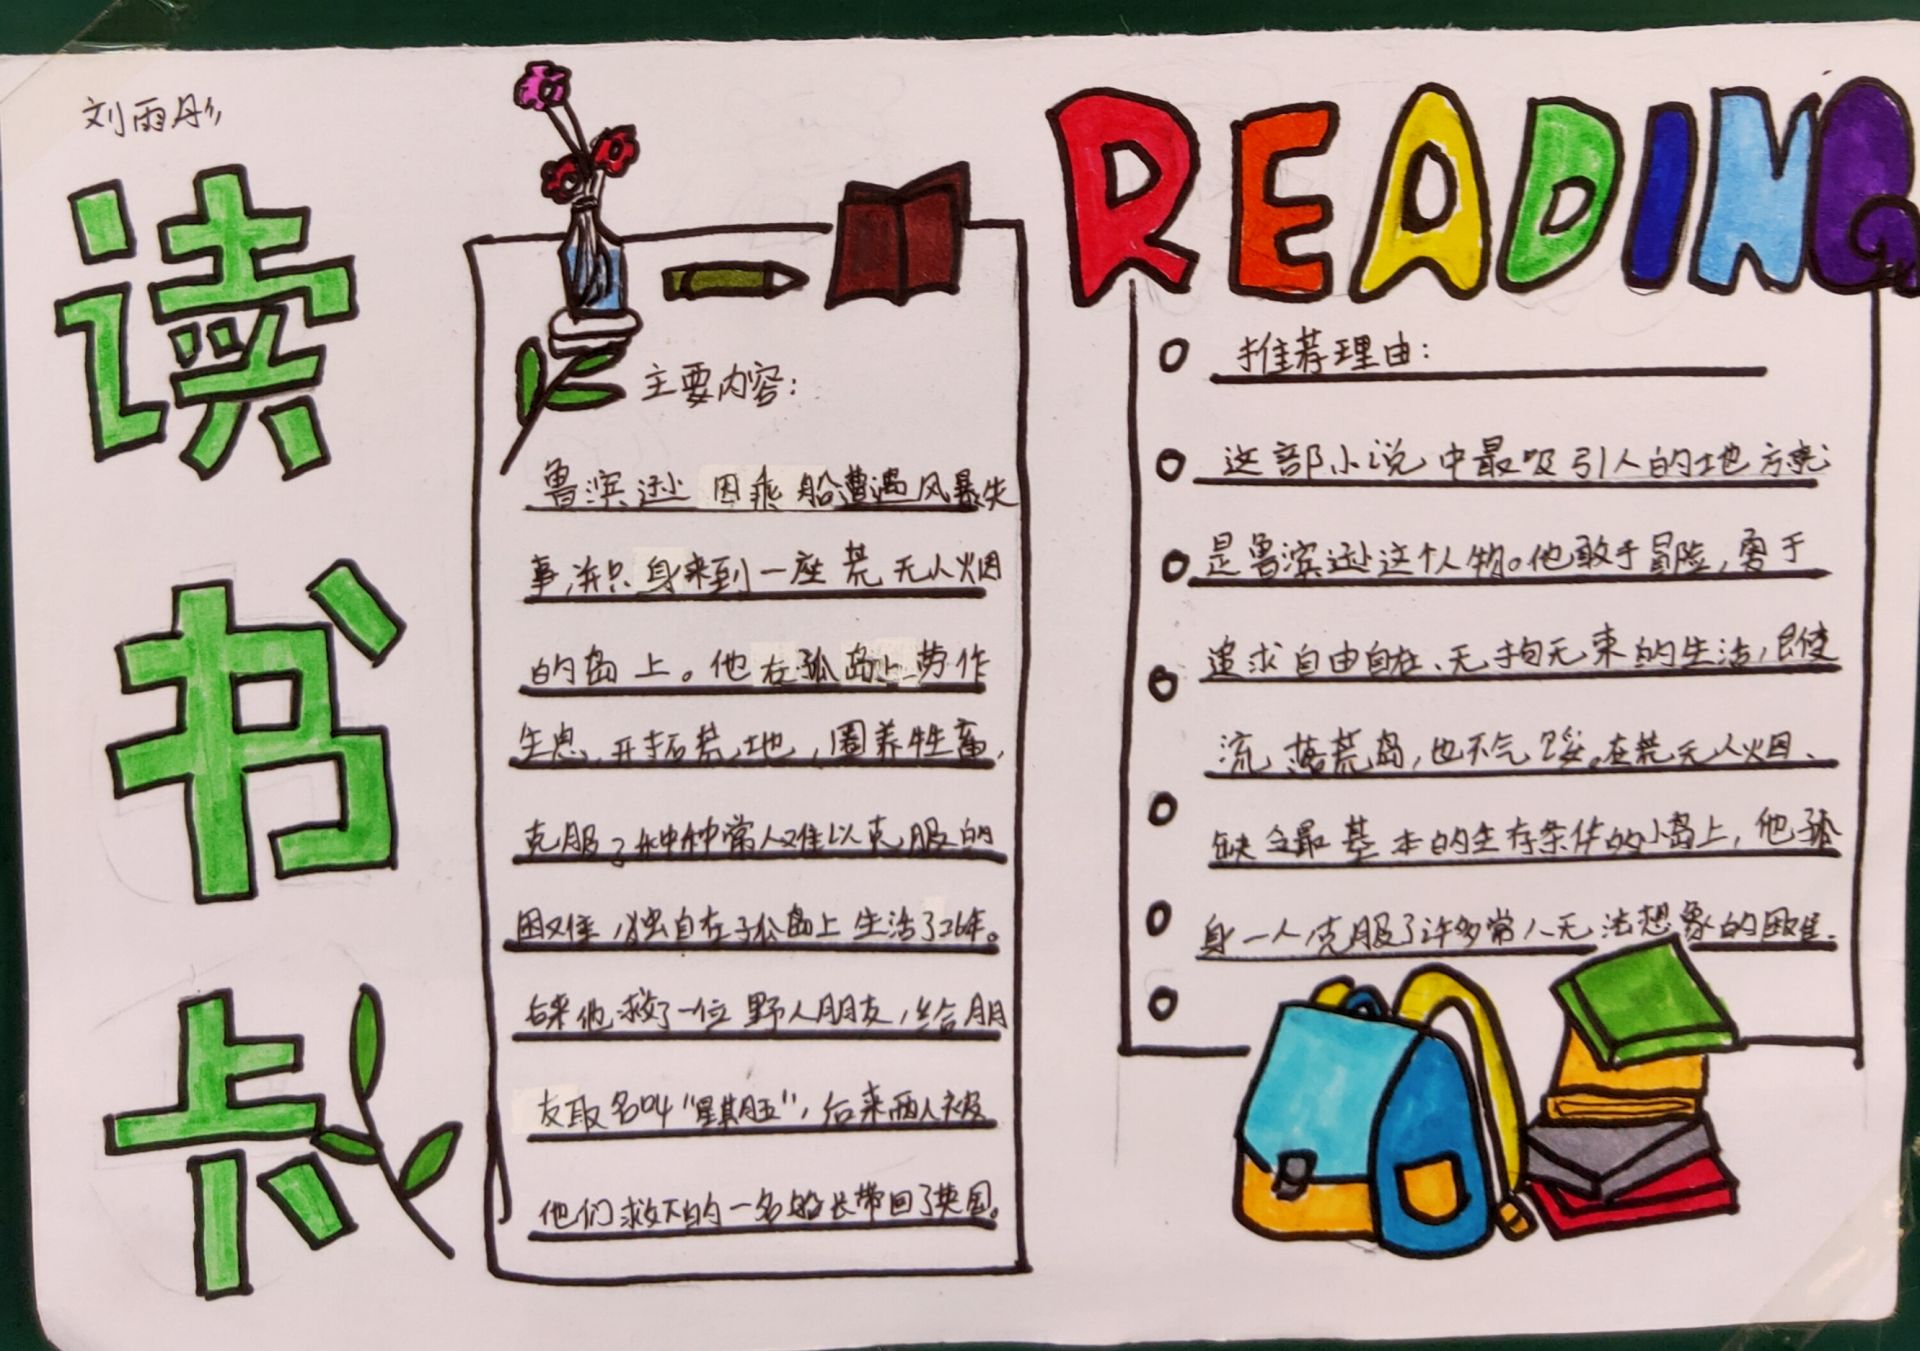 刘雨彤
读书卡
READING
主要内容：
鲁滨逊因乘船遭遇风暴失
事,并只身来到一座荒无人烟
的岛上。他在孤岛上劳作
生息,开拓荒地,圈养牲畜,
克服了种种常人难以克服的
困难,独自在孤岛上生活了26年。
后来他救了一位野人朋友,给朋
友取名叫“星期五”,后来两人被
他们救下的一名船长带回了英国。
推荐理由：
这部小说中最吸引人的地方就
是鲁滨逊这个人物。他敢于冒险,勇于
追求自由自在、无拘无束的生活,即使
流落荒岛,也不气馁。在荒无人烟、
缺乏最基本的生存条件的小岛上,他孤
身一人克服了许多常人无法想象的困难.